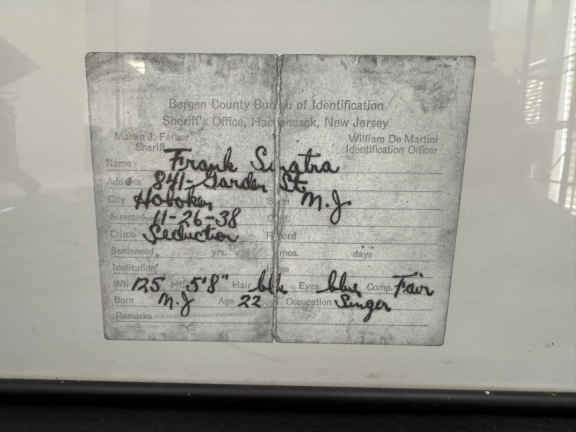 Bergen County Bureau of Identification
Sheriff's Office, Hackensack, New Jersey
William De Martini
Sheriff Identification Officer
Name Frank Sinatra
Address 841-Garden St.
City Hoboken State N.J
Arrested 11-26-38
Crime Seduction Record
Sentenced yrs. mos. days
Institution
Wt. 125 Ht. 5'8" Hair blk Eyes blue Comp. Fair
Born N.J Age 22 Occupation Singer
Remarks